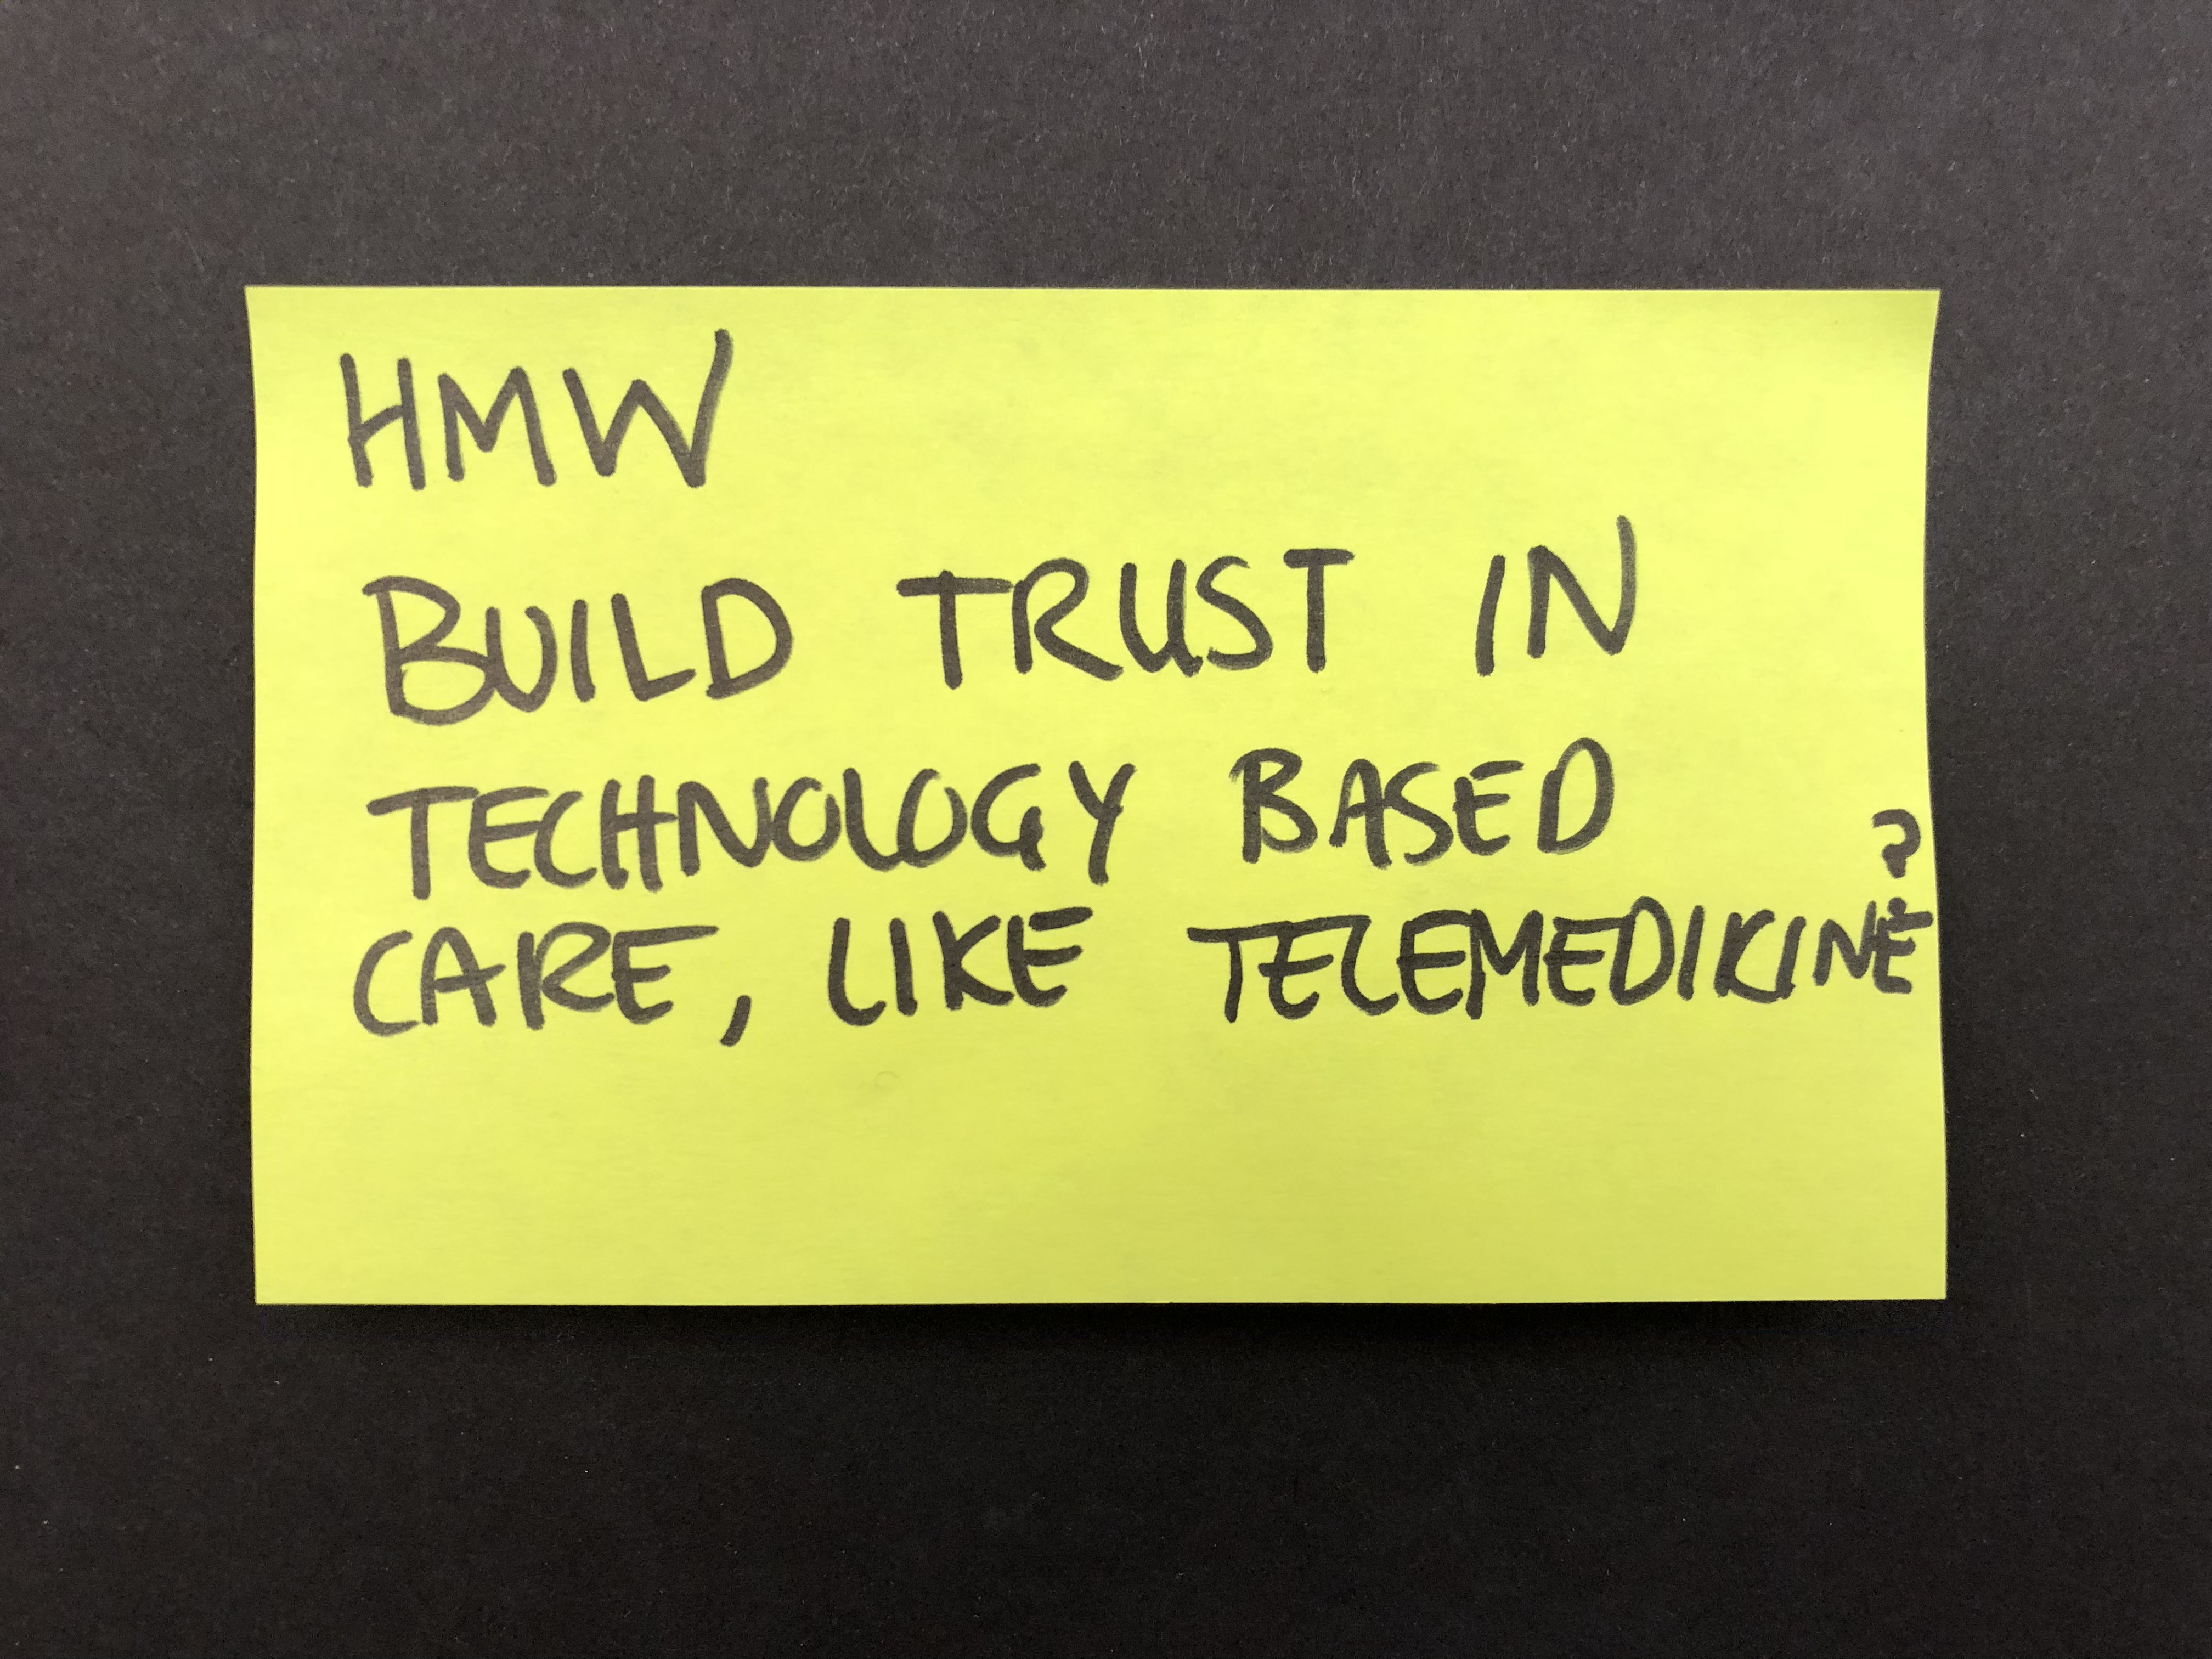 HMW
BUILD TRUST IN
TECHNOLOGY BASED
CARE, LIKE TELEMEDIKINE?